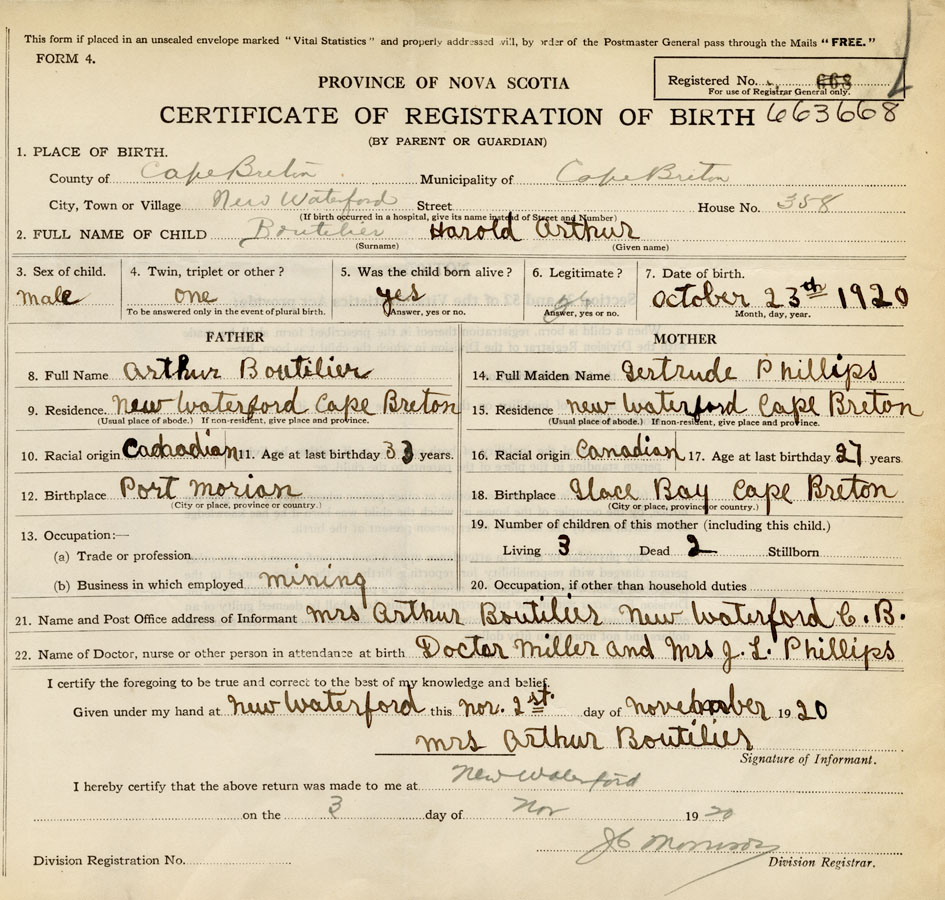 This form if placed in an unsealed envelope marked "Vital Statistics" and properly addressed will, by order of the Postmaster General pass through the Mails "FREE."
FORM 4.
PROVINCE OF NOVA SCOTIA
Registered No. 668
For use of Registrar General only.
CERTIFICATE OF REGISTRATION OF BIRTH 663668
(BY PARENT OR GUARDIAN)
1. PLACE OF BIRTH.
County of Cape Breton Municipality of Cape Breton
City, Town or Village New Waterford Street House No. 358
(If birth occurred in a hospital, give its name instead of Street and Number)
2. FULL NAME OF CHILD Boutilier Harold Arthur
(Surname) (Given name)
3. Sex of child. 4. Twin, triplet or other? 5. Was the child born alive? 6. Legitimate? 7. Date of birth.
male one yes October 23th 1920
To be answered only in the event of plural birth. Answer, yes or no. Answer, yes or no. Month, day, year.
FATHER MOTHER
8. Full Name Arthur Boutilier 14. Full Maiden Name Gertrude Phillips
9. Residence. New Waterford Cape Breton 15. Residence new Waterford Cape Breton
(Usual place of abode.) If non-resident, give place and province. (Usual place of abode.) If non-resident, give place and province.
10. Racial origin 11. Age at last birthday 33 years. 16. Racial origin Canadian 17. Age at last birthday 27 years.
12. Birthplace Port Morian 18. Birthplace Glace Bay Cape Breton
(City or place, province or country.) (City or place, province or country.)
13. Occupation:— 19. Number of children of this mother (including this child.)
(a) Trade or profession Living 3 Dead 2 Stillborn
(b) Business in which employed mining 20. Occupation, if other than household duties
21. Name and Post Office address of Informant mrs Arthur Boutilier New Waterford C.B.
22. Name of Doctor, nurse or other person in attendance at birth Doctor Miller and Mrs J. L. Phillips
I certify the foregoing to be true and correct to the best of my knowledge and belief.
Given under my hand at New Waterford this nov. 2st. day of november 1920
mrs Arthur Boutilier
Signature of Informant.
I hereby certify that the above return was made to me at New Waterford
on the 3 day of Nov 1920
Morrison
Division Registration No. Division Registrar.